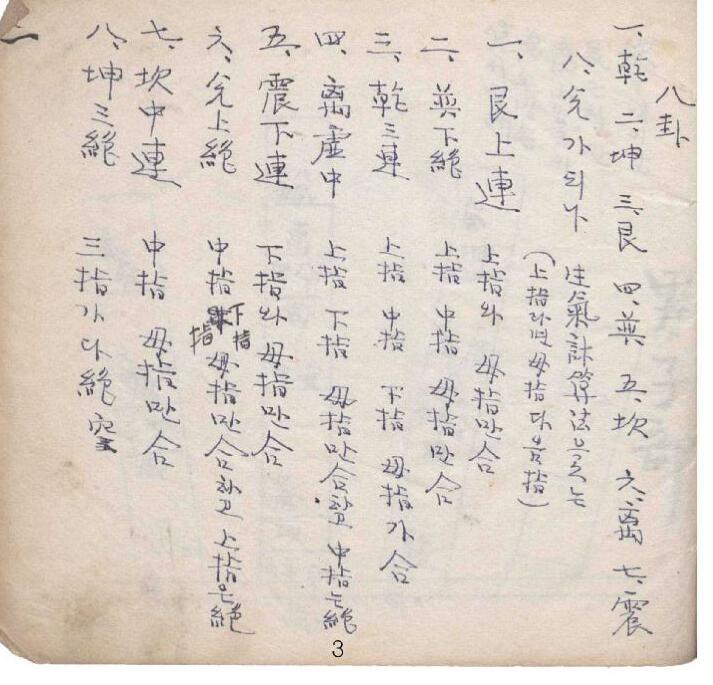 八卦
一、乾 二、坤 三、艮 四、巽 五、坎 六、离 七、震
八、兌가 되나 生氣計算法으로는
(上指라면 母指 다음 指)
一、艮上連 上指와 母指만 合
二、巽下絶 上指 中指 母指만 合
三、乾三連 上指 中指 下指 母指가 合
四、离虛中 上指 下指 母指만 合하고 中指는 絶
五、震下連 下指와 母指만 合
六、兌上絶 中指 下指 母指만 合하고 上指은 絶
七、坎中連 中指 母指만 合
八、坤三絶 三指가 다 絶空
3